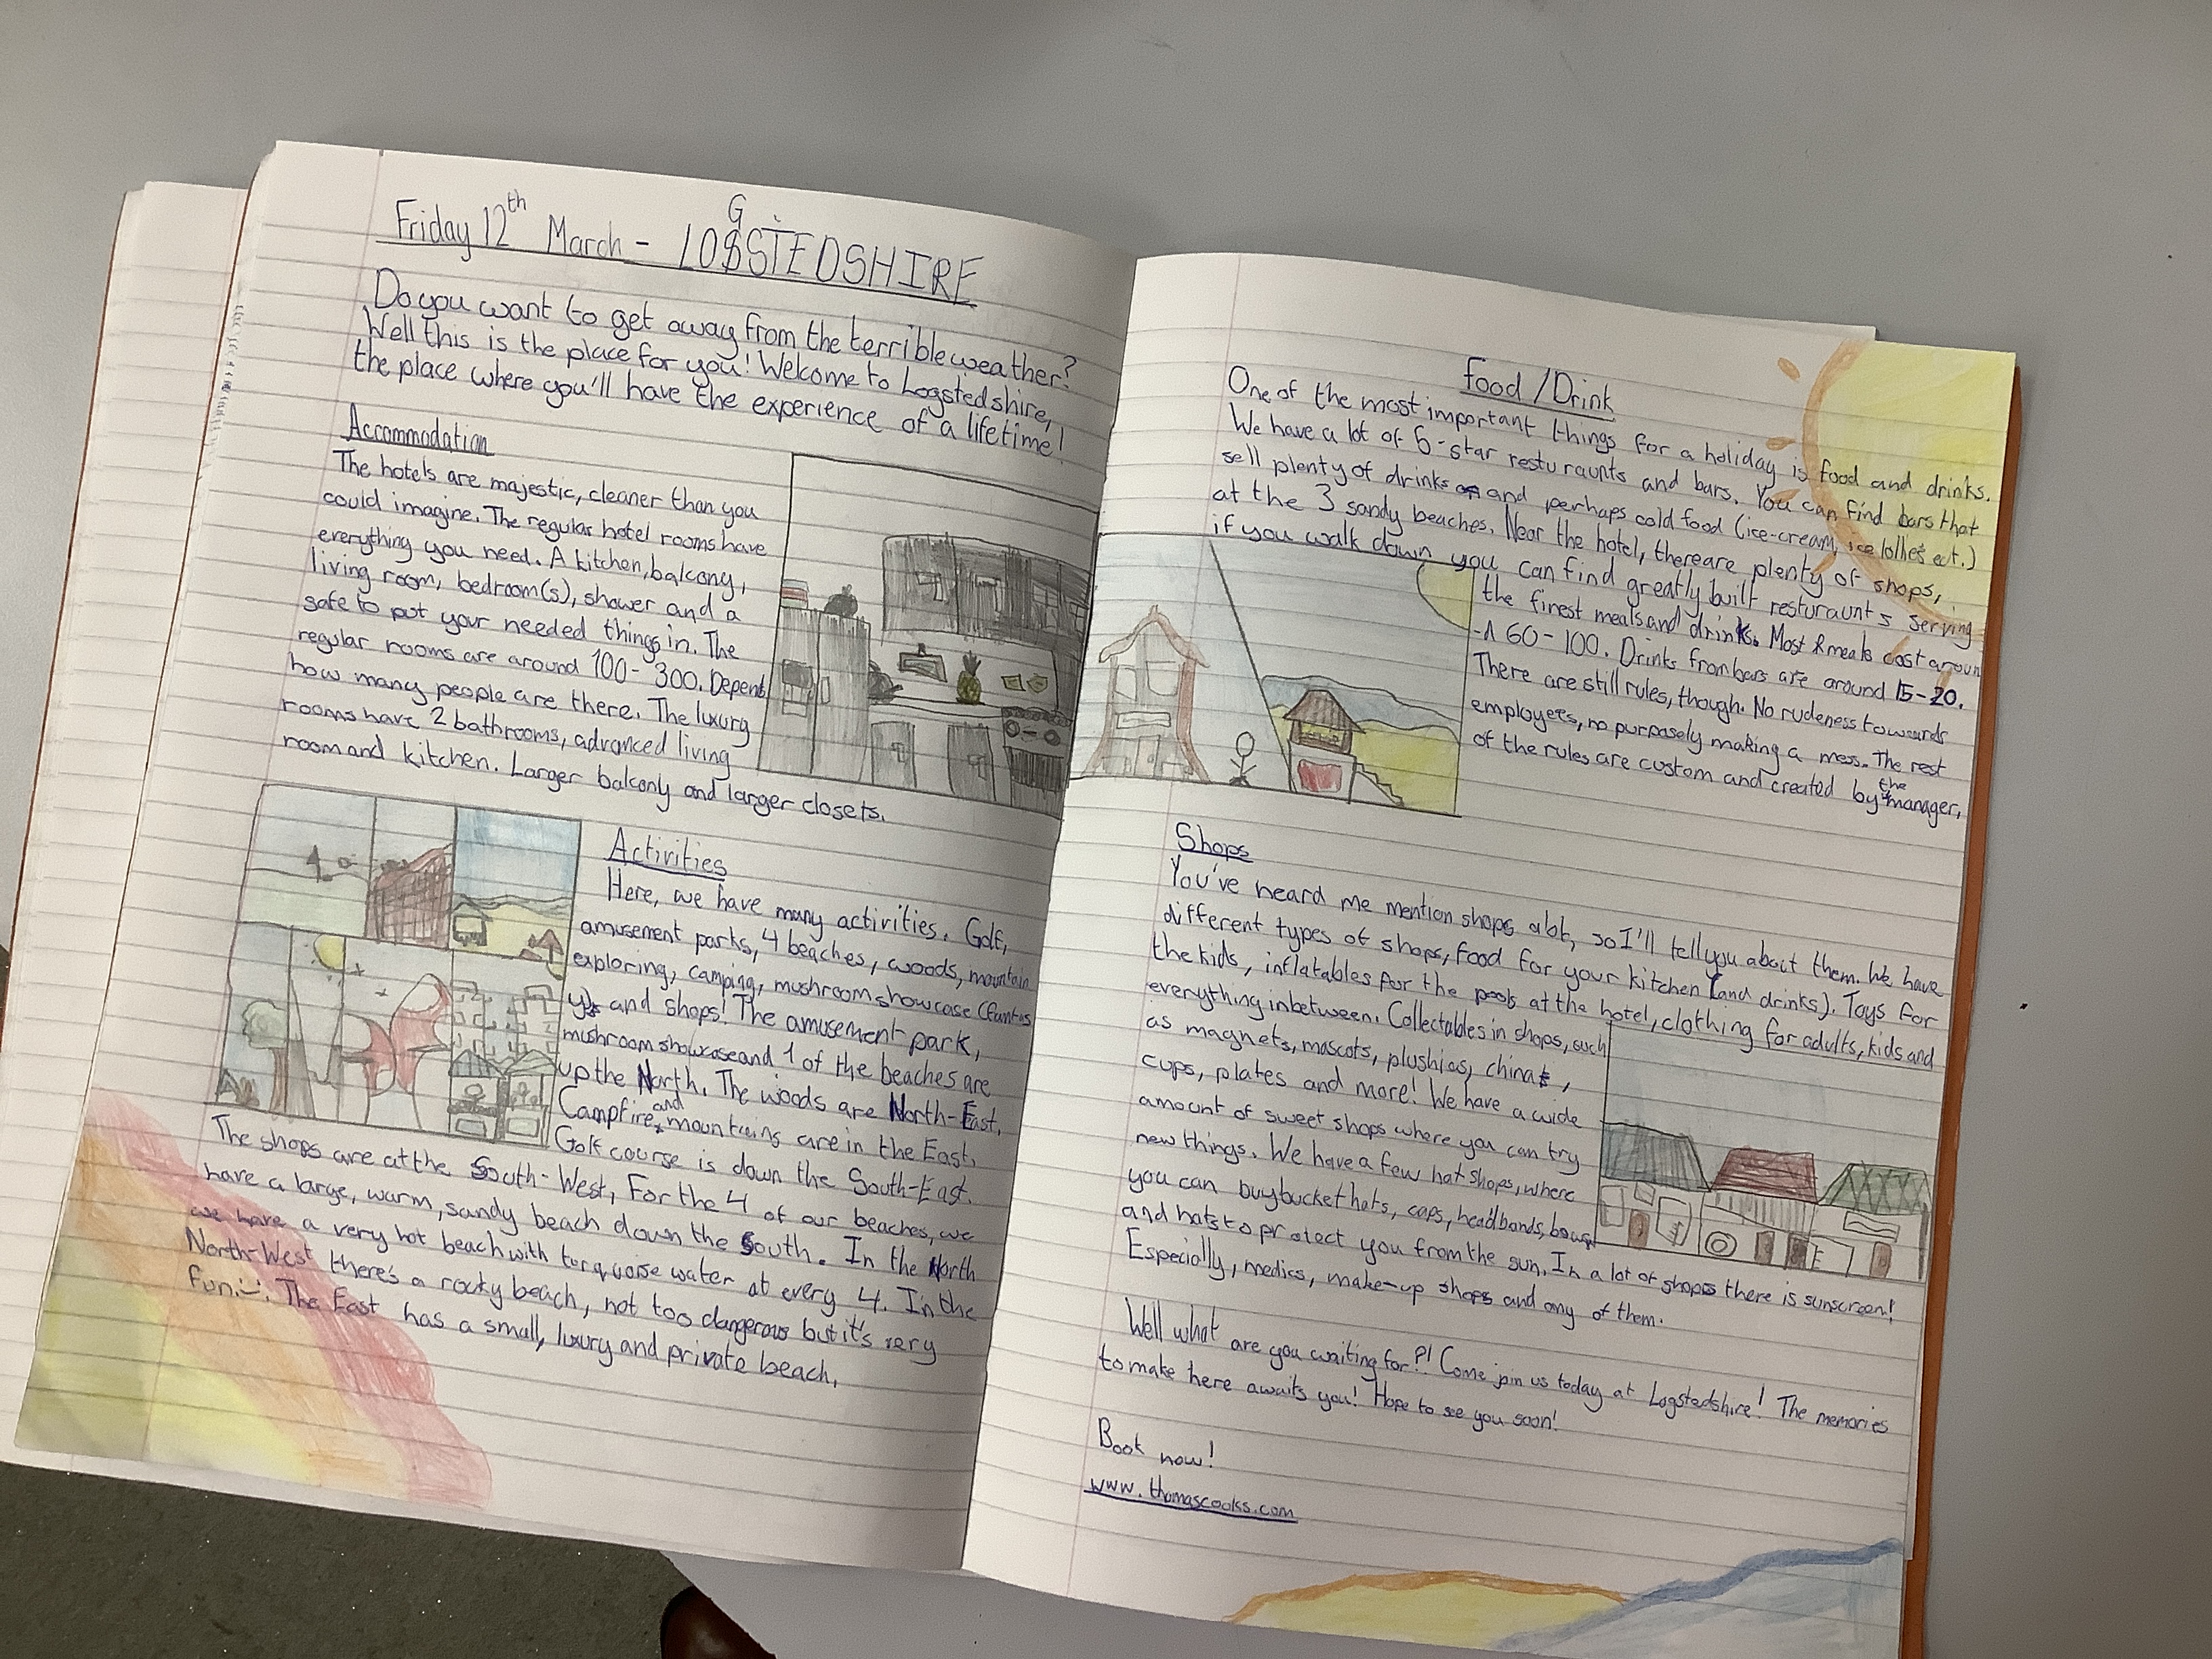 Friday 12th March - LOGSTEDSHIRE
Do you want to get away from the terrible weather?
Well this is the place for you! Welcome to Logstedshire,
the place where you'll have the experience of a lifetime!
Accommodation
The hotels are majestic, cleaner than you
could imagine. The regular hotel rooms have
everything you need. A kitchen, balcony,
living room, bedroom(s), shower and a
safe to put your needed things in. The
regular rooms are around 100 - 300. Depends
how many people are there. The luxury
rooms have 2 bathrooms, advanced living
room and kitchen. Larger balcony and larger closets.
Activities
Here, we have many activities. Golf,
amusement parks, 4 beaches, woods, mountain
exploring, camping, mushroom showcase (fantas
y) and shops! The amusement park,
mushroom showcase and 1 of the beaches are
up the North. The woods are North-East.
Campfire and mountains are in the East.
Golf course is down the South-East.
The shops are at the South-West, For the 4 of our beaches, we
have a large, warm, sandy beach down the South. In the North
we have a very hot beach with torquoise water at every 4. In the
North-West there's a rocky beach, not too dangerous but it's very
fun. The East has a small, luxury and private beach.
Food/Drink
One of the most important things for a holiday is food and drinks.
We have a lot of 5-star resturaunts and bars. You can find bars that
sell plenty of drinks and perhaps cold food (ice-cream, ice lollies ect.)
at the 3 sandy beaches. Near the hotel, there are plenty of shops,
if you walk down you can find greatly built resturaunts serving
the finest meals and drinks. Most meals cost aroun
-d 60-100. Drinks from bars are around 15-20.
There are still rules, though. No rudeness towards
employees, no purposely making a mess. The rest
of the rules are custom and created by the manager.
Shops
You've heard me mention shops alot, so I'll tell you about them. We have
different types of shops, food for your kitchen (and drinks). Toys for
the kids, inflatables for the pools at the hotel, clothing for adults, kids and
everything inbetween. Collectables in shops, such
as magnets, mascots, plushies, china,
cups, plates and more! We have a wide
amount of sweet shops where you can try
new things. We have a few hat shops, where
you can buy bucket hats, caps, headbands,
and hats to protect you from the sun. In a lot of shops there is sunscreen!
Especially, medics, make-up shops and any of them.
Well what are you waiting for?! Come join us today at Logstedshire! The memories
to make here awaits you! Hope to see you soon!
Book now!
www.thomascooks.com